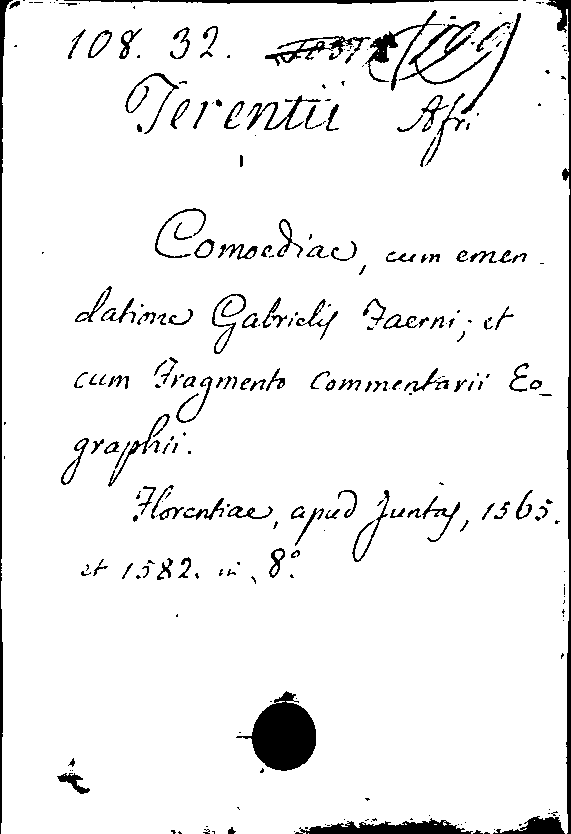 108. 32.
Terentii Afri
Comoediae, cum emen-
datione Gabrielis Faerni; et
cum Fragmento Commentarii Eo-
graphii.
Florentiae, apud Juntas, 1565.
et 1582. in 8°.